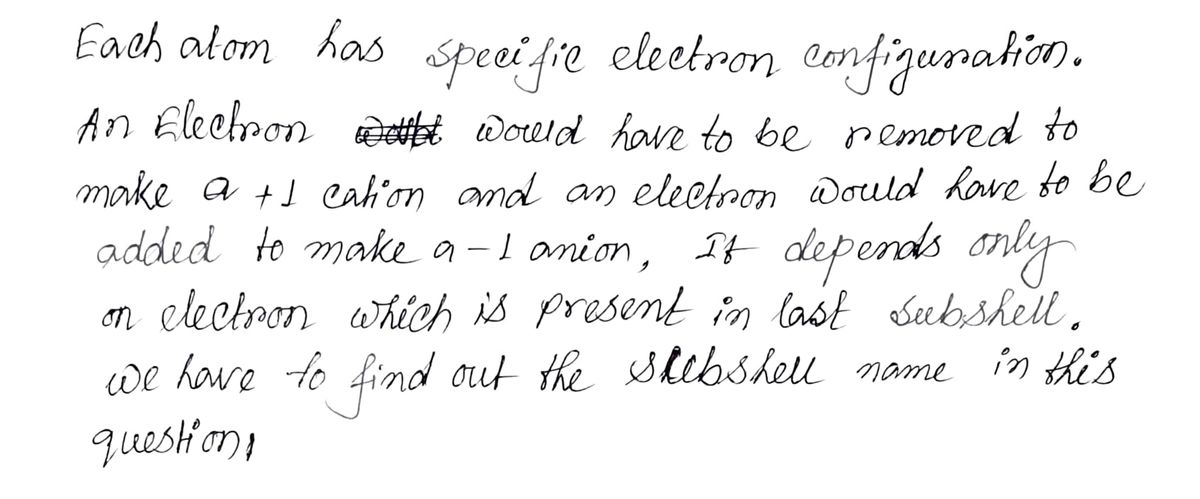 Each atom has specific electron configuration.
An Electron would have to be removed to
make a +1 cation and an electron would have to be
added to make a -1 anion, It depends only
on electron which is present in last subshell.
we have to find out the subshell name in this
question,